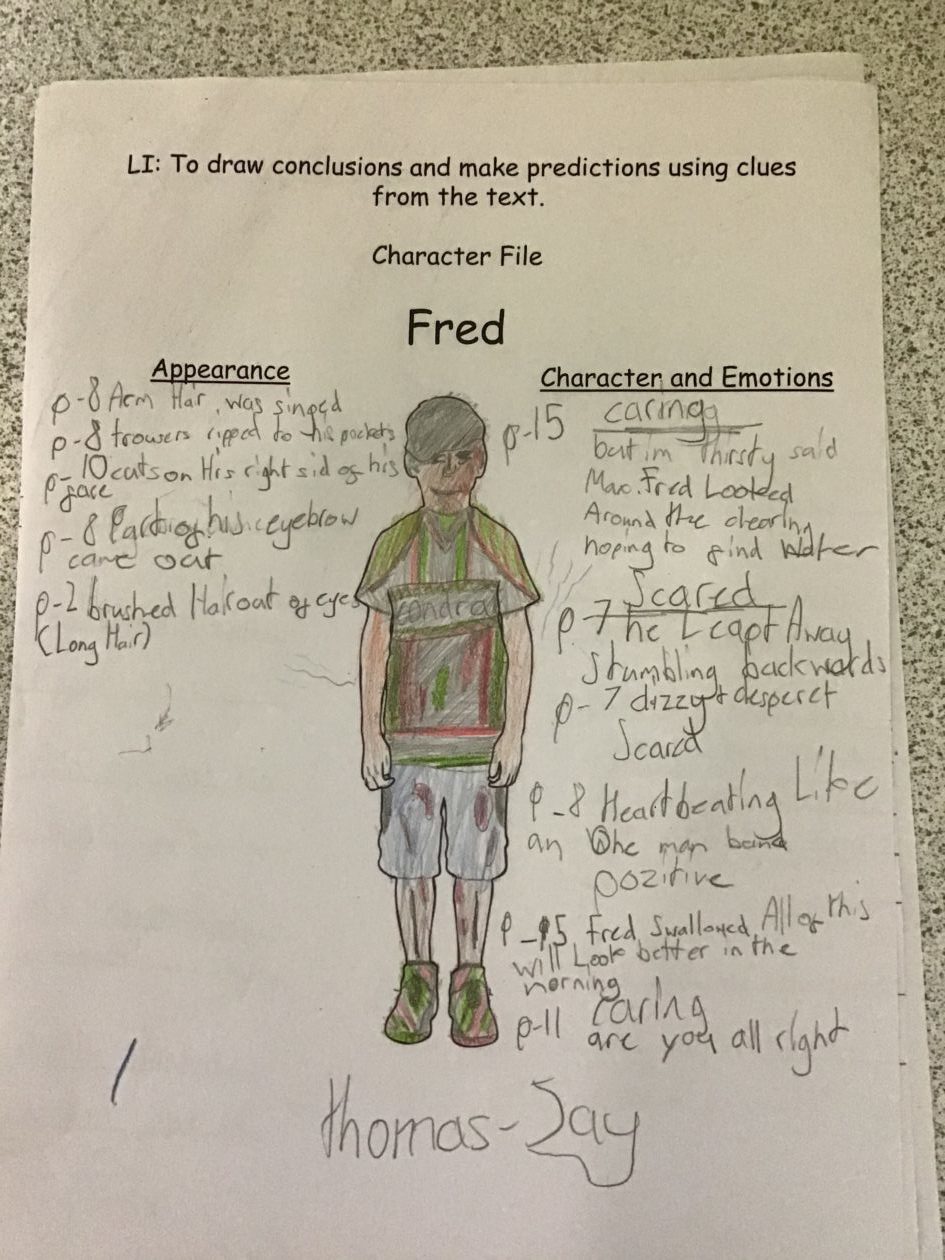 LI: To draw conclusions and make predictions using clues
from the text.
Character File
Fred
Appearance
p-8 Arm Har was singed
p-8 trowers ripped to his pockets
p-10 cuts on His right sid of his
face
p-8 Part of his eyebrow
came out
p-2 brushed Hair out of eyes
(Long Hair)
Character and Emotions
p-15 caring
but im thirsty said
Max. Fred Looked
Around the clearing
hoping to find Water
Scared
p-7 he Leapt Away
stumbling backwards
p-7 dizzy + desperet
Scared
p-8 Heart beating Like
an One man band
pozitive
p-15 Fred Swallowed All of this
will Look better in the
morning
p-11 caring
are you all right
Thomas-Jay